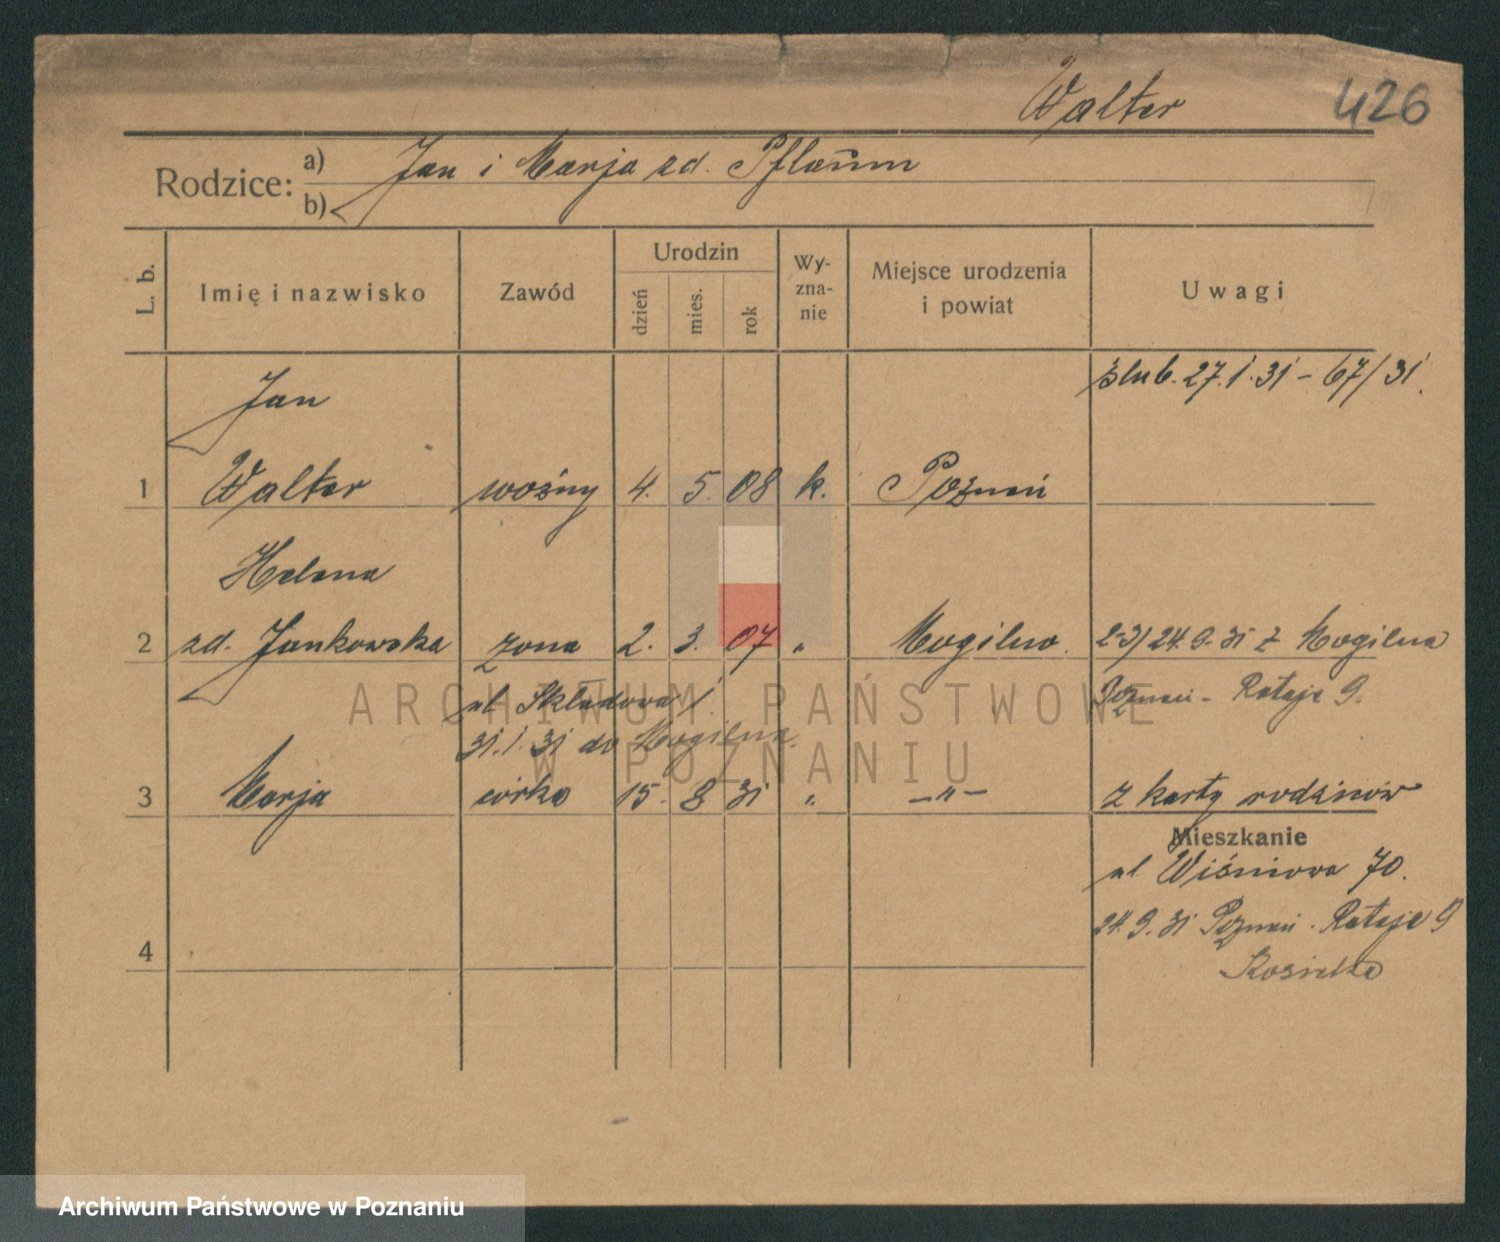 Walter 426
Rodzice: a) Jan i Marja zd. Pflaum
b)
L. b. Imię i nazwisko Zawód Urodzin dzień mies. rok Wy-zna-nie Miejsce urodzenia i powiat Uwagi
ślub. 27.1.31 – 67/31.
Jan
1 Walter woźny 4. 5. 08 k. Poznań
Helena
2 zd. Jankowska żona 2. 3. 07 " Mogilno. 2-3/24.9.31 z Mogilna
ul Składowa 1. Poznań - Rataje 9.
31.1.31 do Mogilna.
3 Marja córka 15. 8 31 " –"– z karty rodziców
Mieszkanie
ul Wiśniowa 70.
24.9.31 Poznań - Rataje 9
4
ARCHIWUM PAŃSTWOWE
W POZNANIU
Archiwum Państwowe w Poznaniu